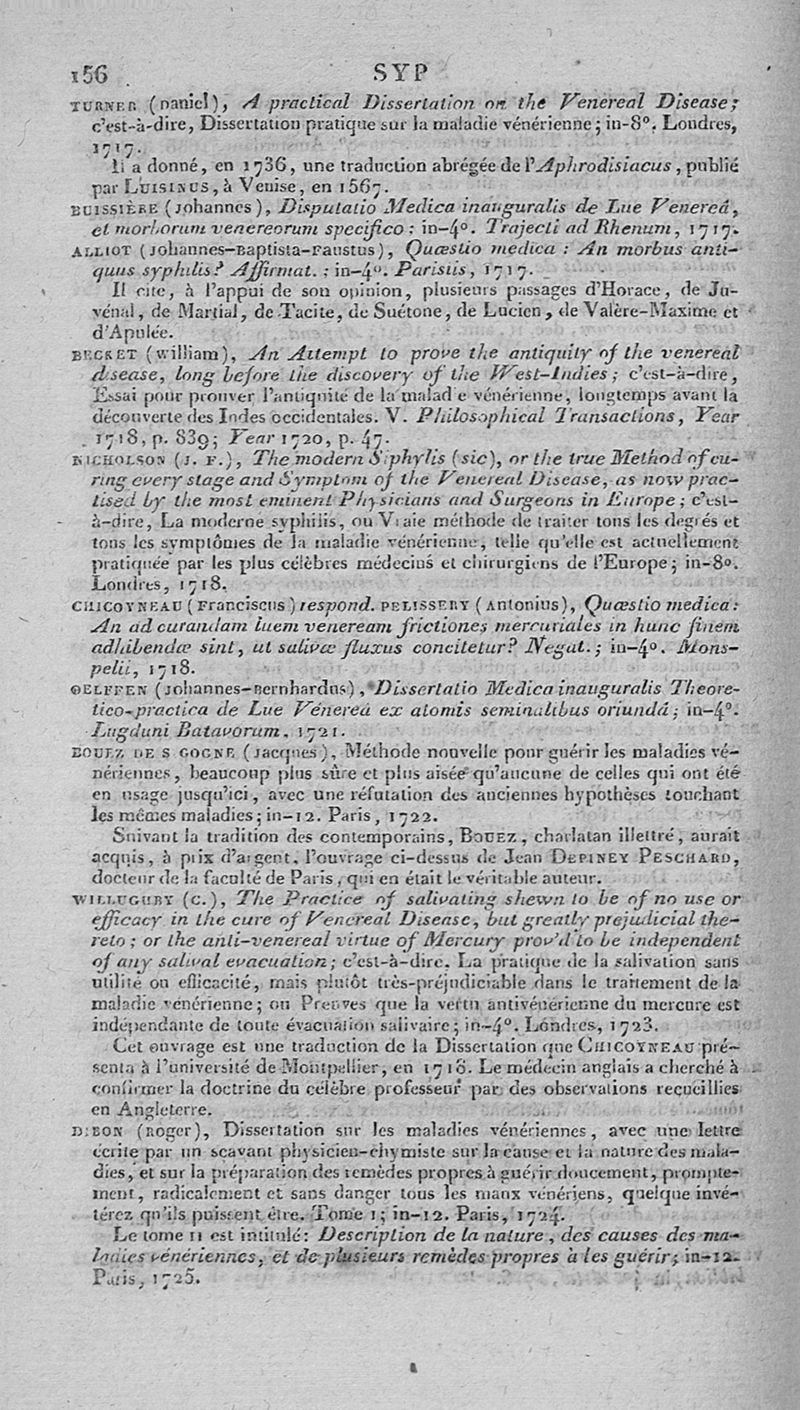 156 SYP
TURNER (Daniel), A practical Dissertation on the Venereal Disease;
c'est-à-dire, Dissertation pratique sur la maladie vénérienne; in-8°. Londres,
1717.
Il a donné, en 1736, une traduction abrégée de l'Aphrodisiacus, publié
par LUISINUS, à Venise, en 1567.
BUISSIÈRE (Johannes), Disputatio Medica inauguralis de Lue Venereâ,
et morborum venereorum specifico; in-4°. Trajecti ad Rhenum, 1717.
ALLIOT (Johannes-Baptista-Faustus), Quæstio medica: An morbus anti-
quus syphilis? Affirmat.; in-4°. Parisiis, 1717.
Il cite, à l'appui de son opinion, plusieurs passages d'Horace, de Ju-
vénal, de Martial, de Tacite, de Suétone, de Lucien, de Valère-Maxime et
d'Apulée.
BECKET (William), An Attempt to prove the antiquity of the venereal
disease, long before the discovery of the West-Indies; c'est-à-dire,
Essai pour prouver l'antiquité de la malad e vénérienne, longtemps avant la
découverte des Indes occidentales. V. Philosophical Transactions, Year
1718, p. 839; Year 1720, p. 47.
NICHOLSON (J. F.), The modern Siphylis (sic), or the true Method of cu-
ring every stage and Symptom of the Venereal Disease, as now prac-
tised by the most eminent Physicians and Surgeons in Europe; c'est-
à-dire, La moderne syphilis, ou Vraie méthode de traiter tous les degrés et
tous les symptômes de la maladie vénérienne, telle qu'elle est actuellement
pratiquée par les plus célèbres médecins et chirurgiens de l'Europe; in-8°.
Londres, 1718.
CHICOYNEAU (Franciscus) respond. PELISSERY (Antonius), Quæstio medica:
An ad curandam luem veneream frictiones mercuriales in hunc finem
adhibendæ sint, ut salivæ fluxus concitetur? Negat.; in-4°. Mons-
pelii, 1718.
OELFFEN (Johannes-Bernhardus), Dissertatio Medica inauguralis Theore-
tico-practica de Lue Venereâ ex atomis seminalibus oriundâ; in-4°.
Lugduni Batavorum, 1721.
BOUEZ DE S GOGNE (Jacques), Méthode nouvelle pour guérir les maladies vé-
nériennes, beaucoup plus sûre et plus aisée qu'aucune de celles qui ont été
en usage jusqu'ici, avec une réfutation des anciennes hypothèses touchant
les mêmes maladies; in-12. Paris, 1722.
Suivant la tradition des contemporains, BOUEZ, charlatan illettré, aurait
acquis, à prix d'argent, l'ouvrage ci-dessus de Jean DEPINEY PESCHARD,
docteur de la faculté de Paris, qui en était le véritable auteur.
WILLUGHBY (C.), The Practice of salivating shewn to be of no use or
efficacy in the cure of Venereal Disease, but greatly prejudicial the-
reto; or the anti-venereal virtue of Mercury prov'd to be independent
of any salival evacuation; c'est-à-dire. La pratique de la salivation sans
utilité ou efficacité, mais plutôt très-préjudiciable dans le traitement de la
maladie vénérienne; ou Preuves que la vertu antivénérienne du mercure est
indépendante de toute évacuation salivaire; in-4°. Londres, 1723.
Cet ouvrage est une traduction de la Dissertation que CHICOYNEAU pré-
senta à l'université de Montpellier, en 1718. Le médecin anglais a cherché à
confirmer la doctrine du célèbre professeur par des observations recueillies
en Angleterre.
DIBON (Roger), Dissertation sur les maladies vénériennes, avec une lettre
écrite par un sçavant physicien-chymiste sur la cause et la nature des mala-
dies, et sur la préparation des remèdes propres à guérir doucement, prompte-
ment, radicalement et sans danger tous les maux vénériens, quelque invé-
térez qu'ils puissent être. Tome I; in-12. Paris, 1724.
Le tome II est intitulé: Description de la nature, des causes des ma-
ladies vénériennes, et de plusieurs remèdes propres à les guérir; in-12.
Paris, 1725.